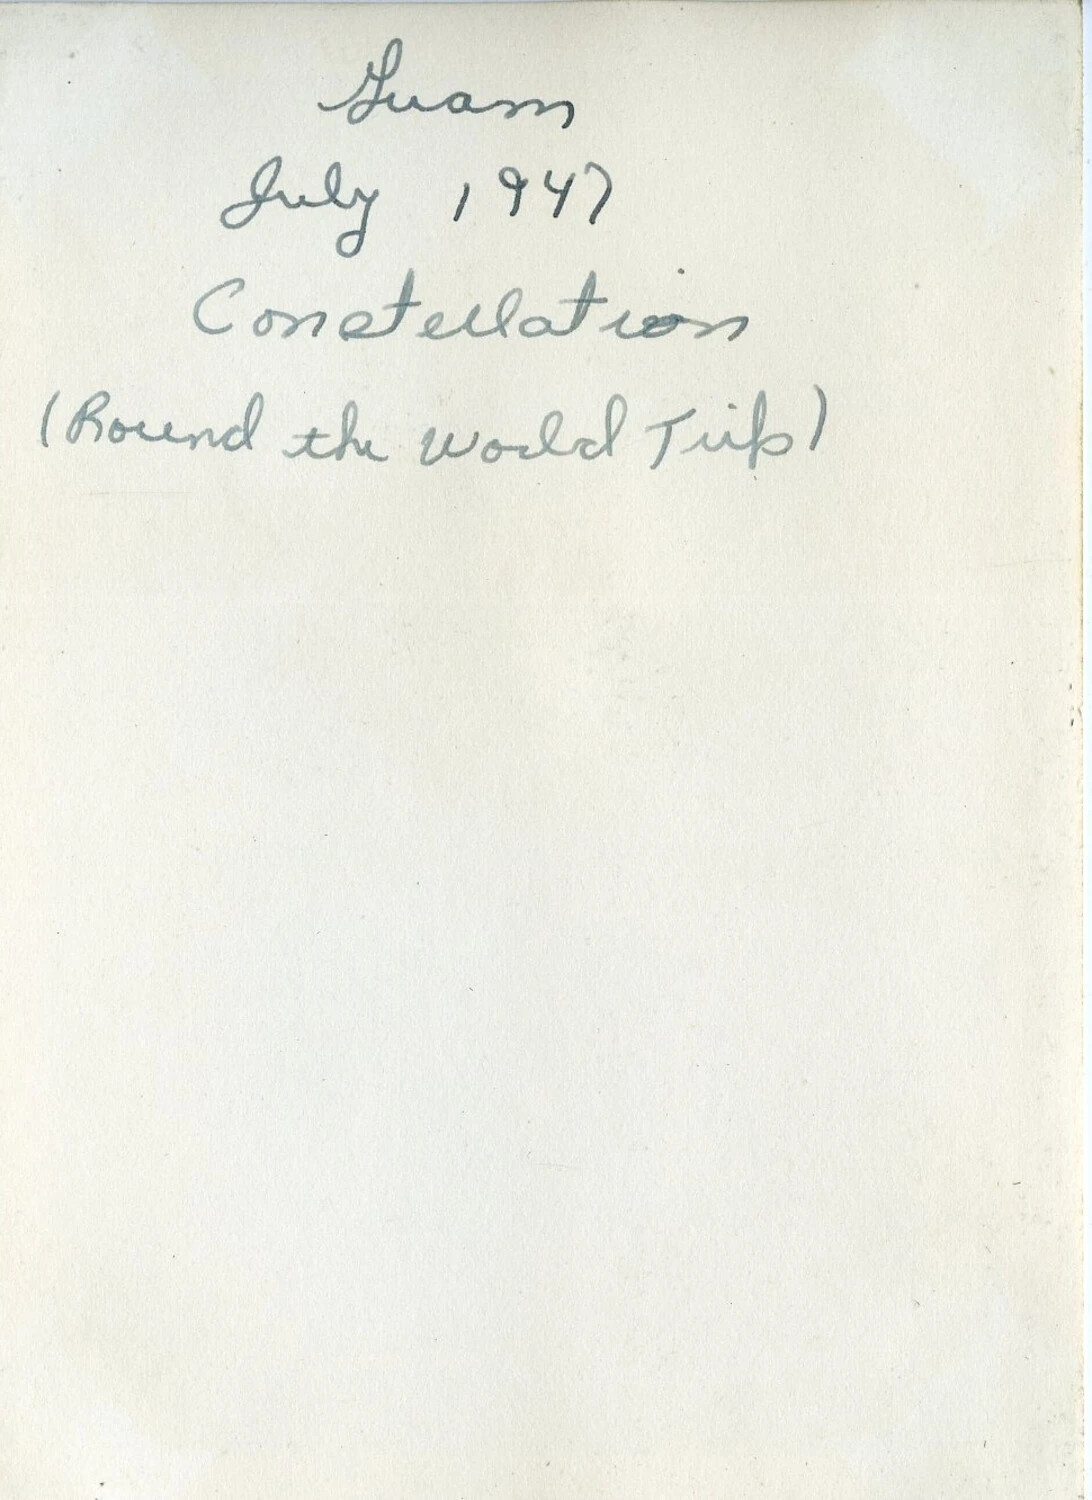 Guam
July 1947
Constellation
(Round the World Trip)